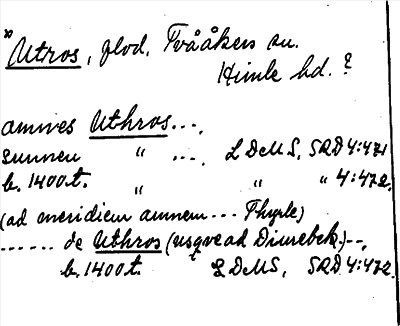 *Utros, flod. Tvååkers sn.
Himle hd. ?
amnes Uthros ....
sunnen " .... LDMS, SRD 4:471
b. 1400 t. " " " 4:472.
(ad meridiem amnem ... Thyrle)
...... de Uthros (usqve ad Diurebek.) --,
b. 1400 t. LDMS, SRD 4:472.